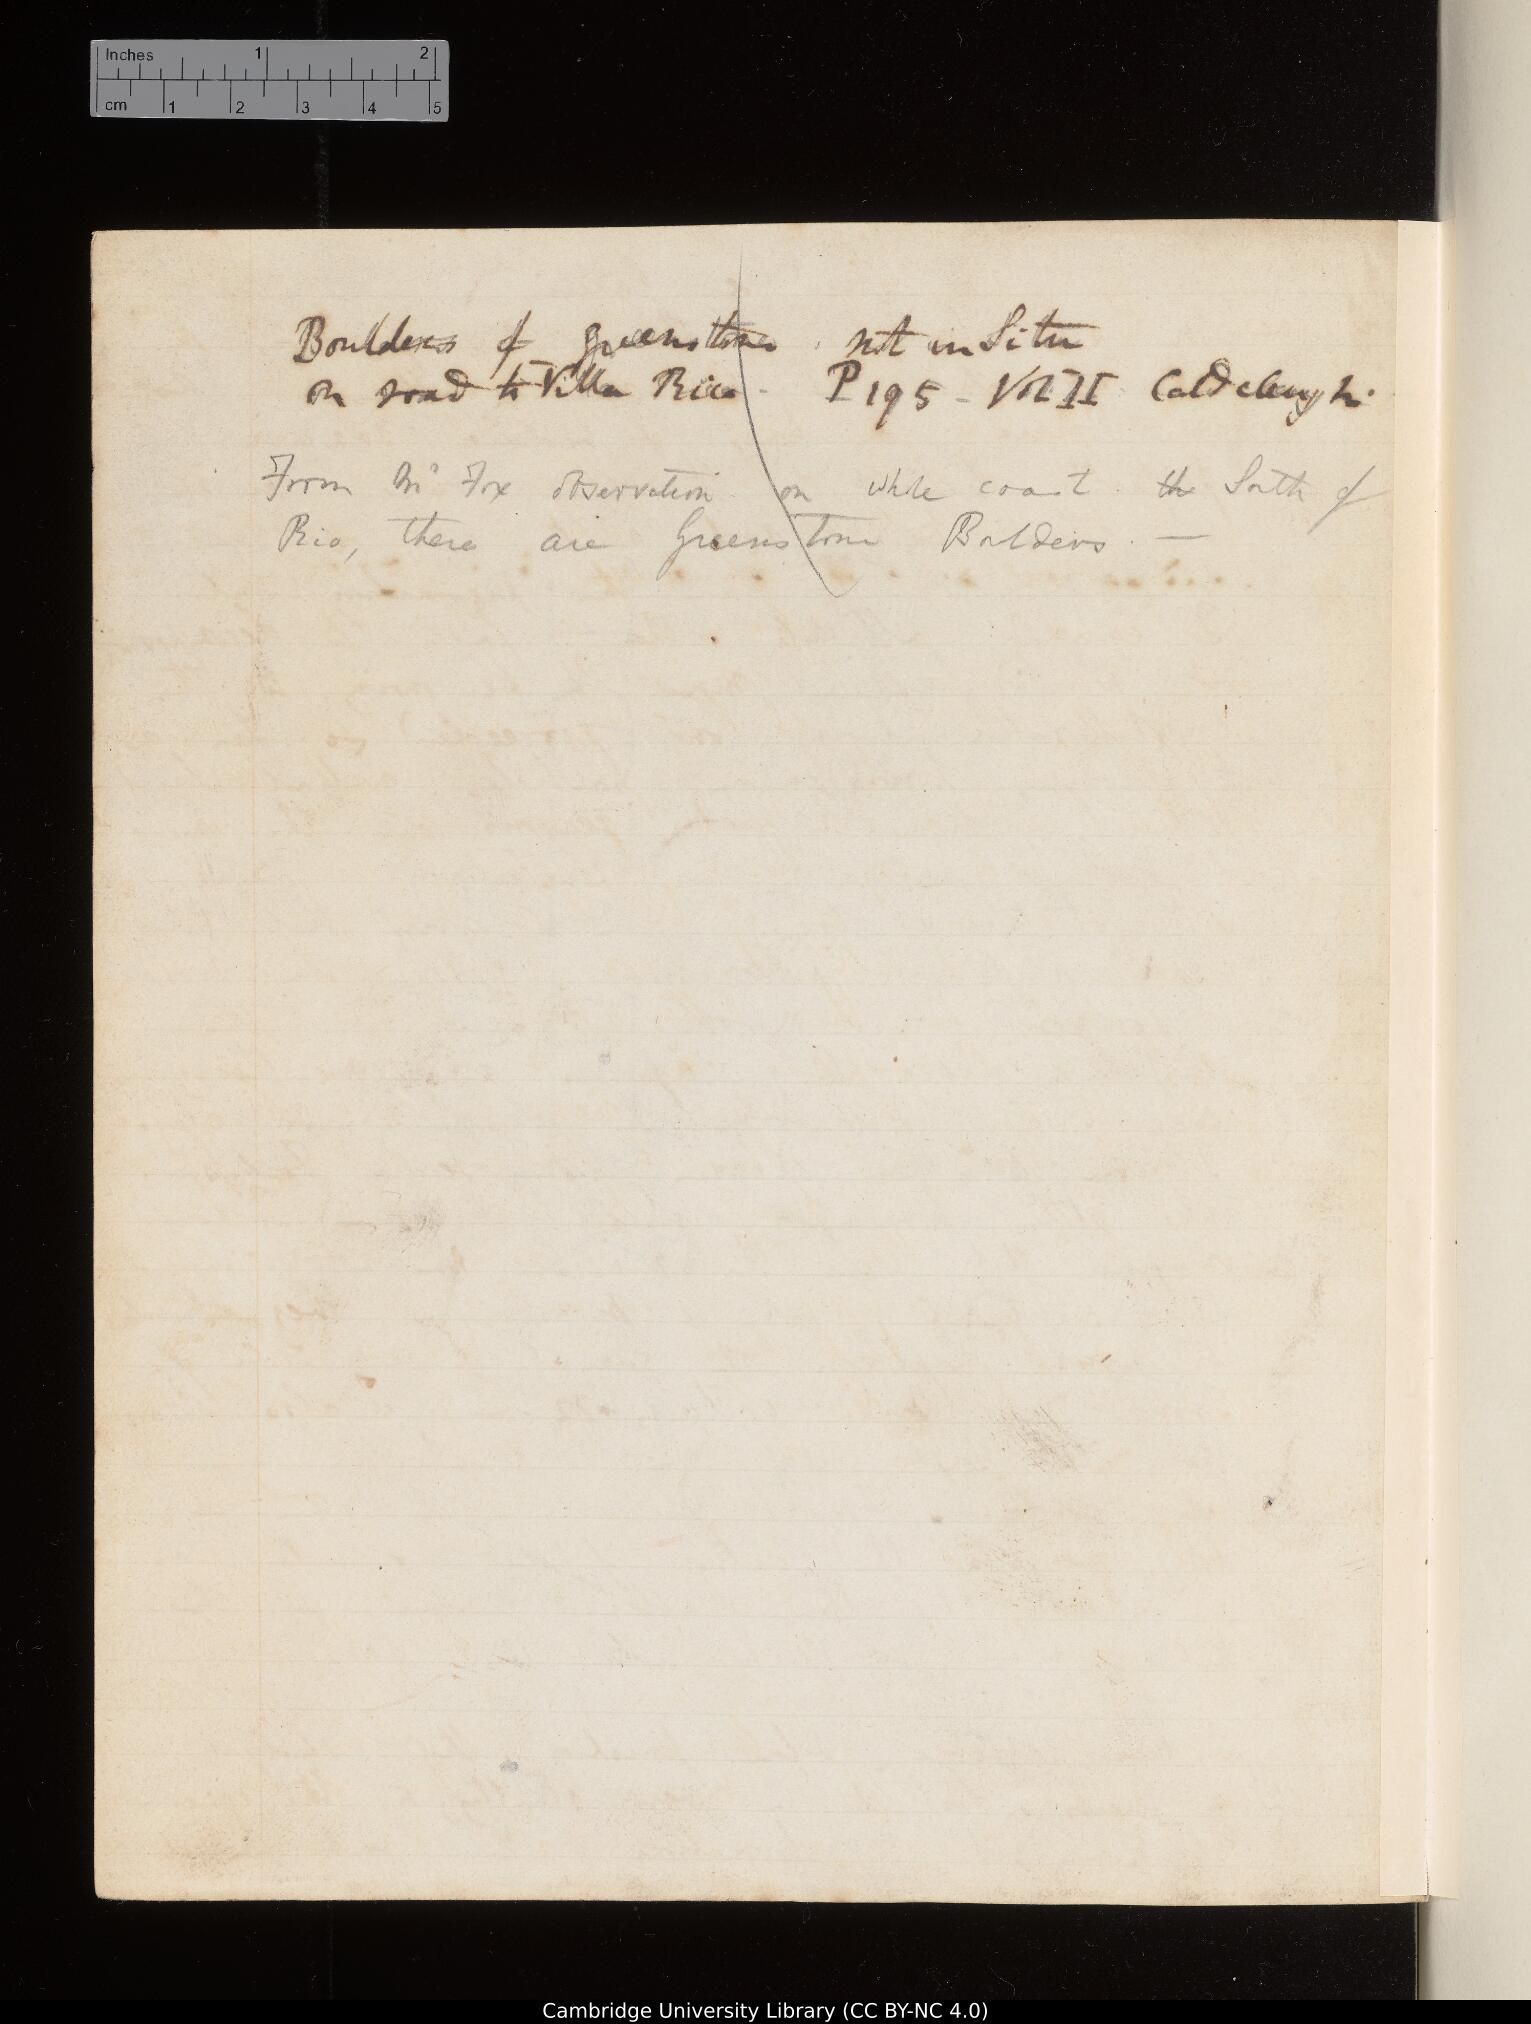 Inches 1 2
cm 1 2 3 4 5
Boulders of greenstone not in Situ
on road to Villa Rica - P 195 - Vol II Caldcleugh.
From Mr Fox observation on whole coast the South of
Rio, there are Greenstone Boulders. —
Cambridge University Library (CC BY-NC 4.0)